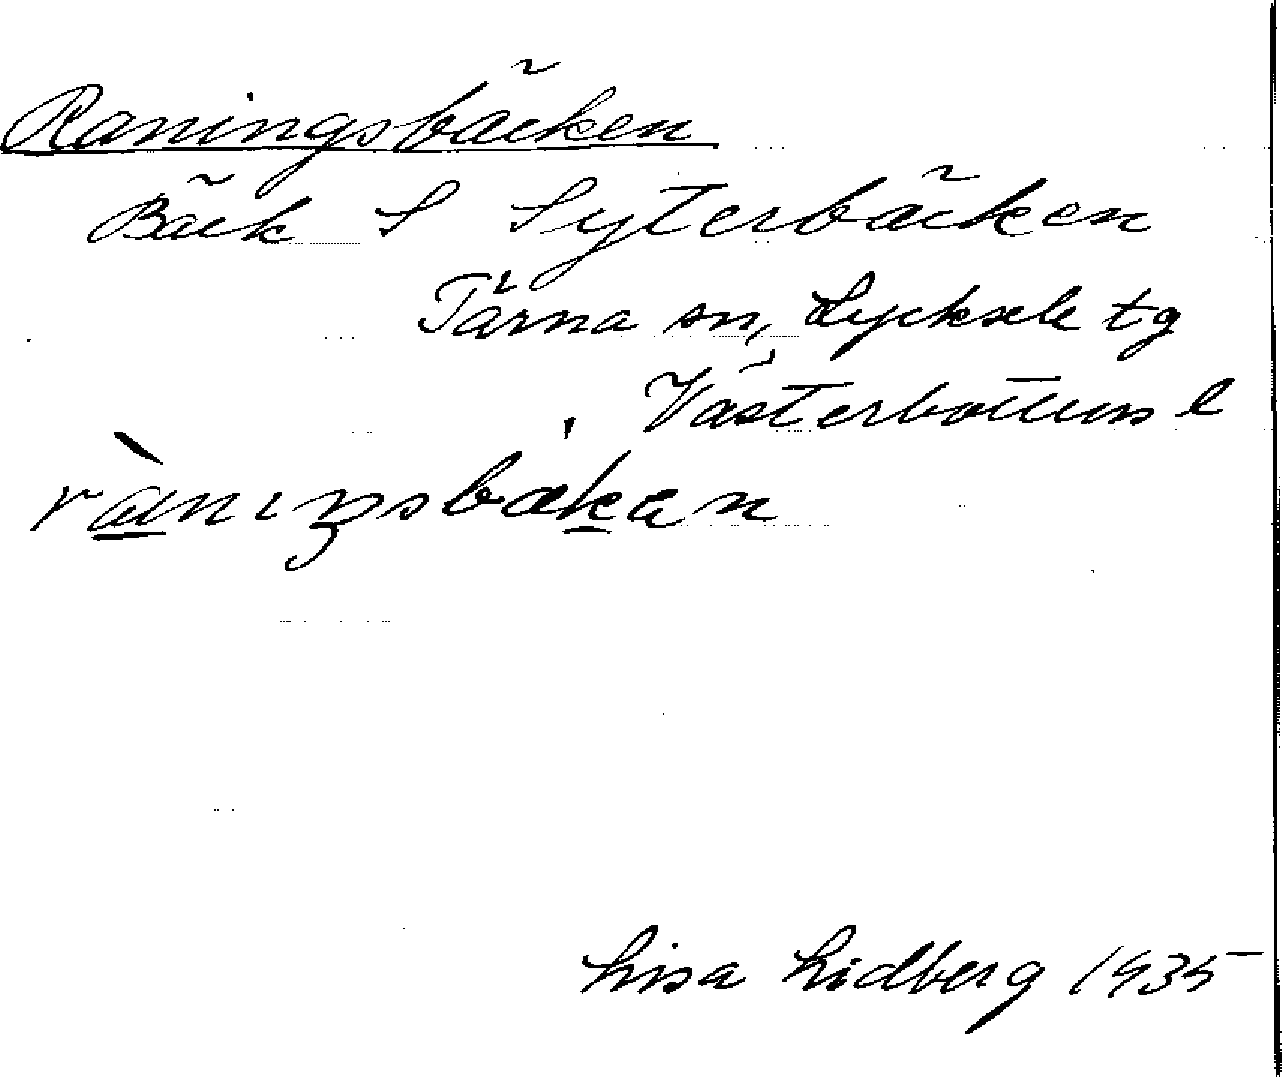 Raningsbäcken
Bäck S Syterbäcken
Tärna sn, Lycksele tg
Västerbottens l
rànıŋsbækan
Lisa Lidberg 1935